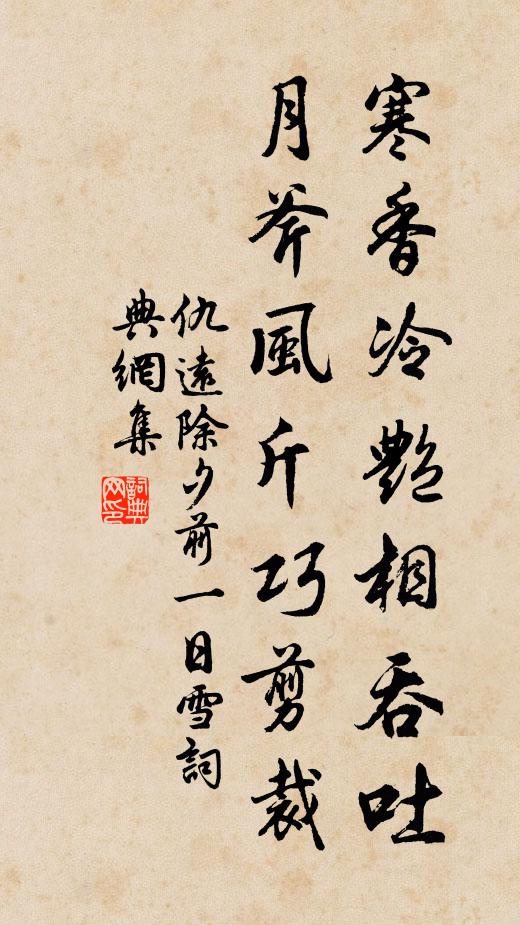 寒香冷艷相吞吐
月斧風斤巧剪裁
仇遠除夕前一日雪詞
典網集
詞典网印